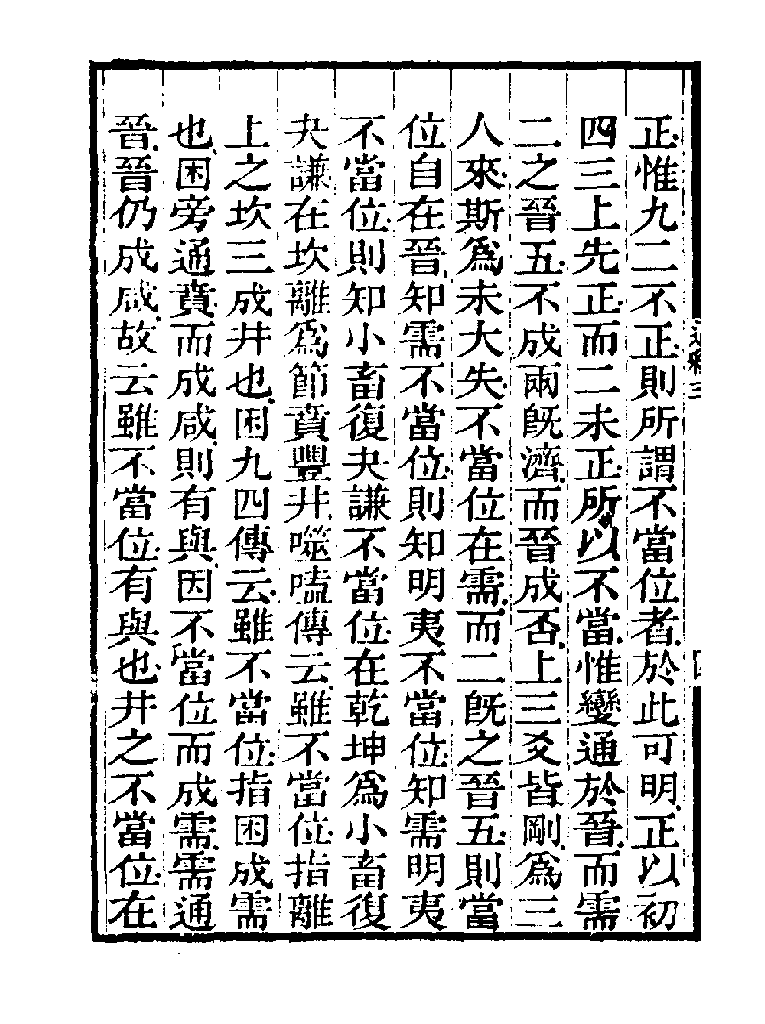 正惟九二不正則所謂不當位者於此可明正以初
四三上先正而二未正所以不當惟變通於晉而需
二之晉五不成兩旣濟而晉成否上三爻皆剛爲三
人來斯爲未大失不當位在需而二旣之晉五則當
位自在晉知需不當位則知明夷不當位知需明夷
不當位則知小畜復夬謙不當位在乾坤爲小畜復
夬謙在坎離爲節賁豐井噬嗑傳云雖不當位指離
上之坎三成井也困九四傳云雖不當位指困成需
也困旁通賁而成咸則有與因不當位而成需需通
晉晉仍成咸故云雖不當位有與也井之不當位在